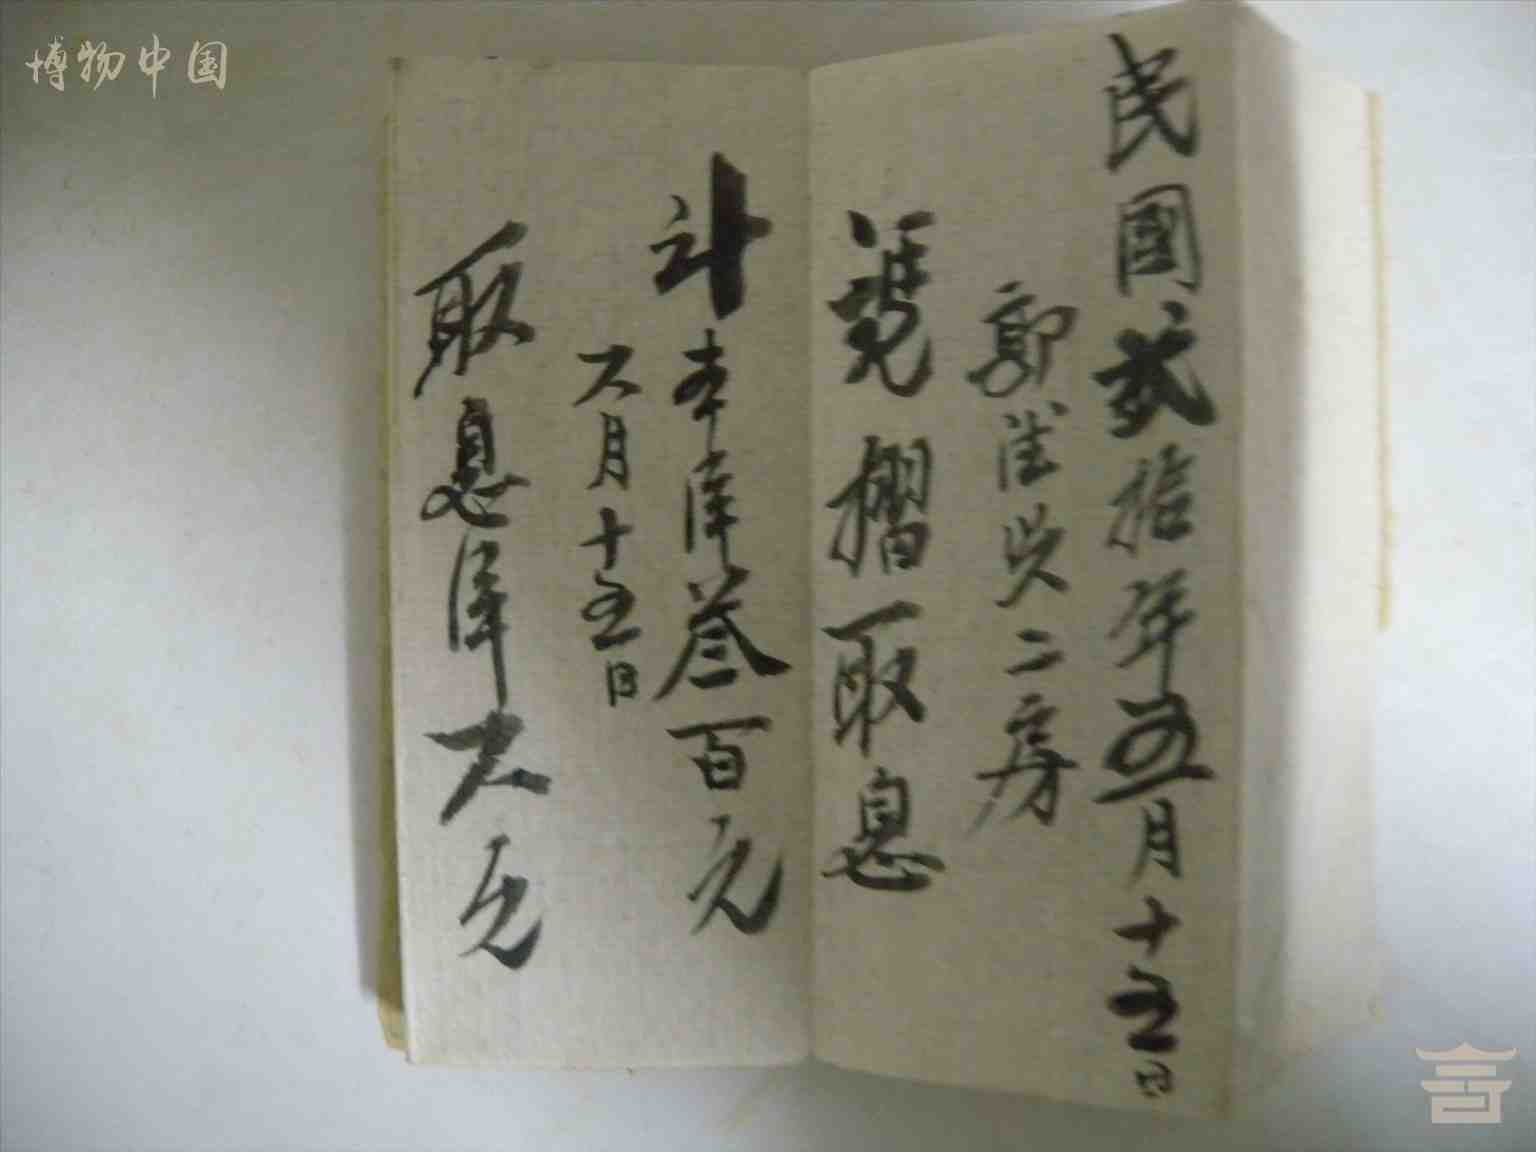 民國貳拾年五月十五日
郭崔氏二房
憑摺取息
計本洋叁百元
六月十五日
取息洋六元
博物中国